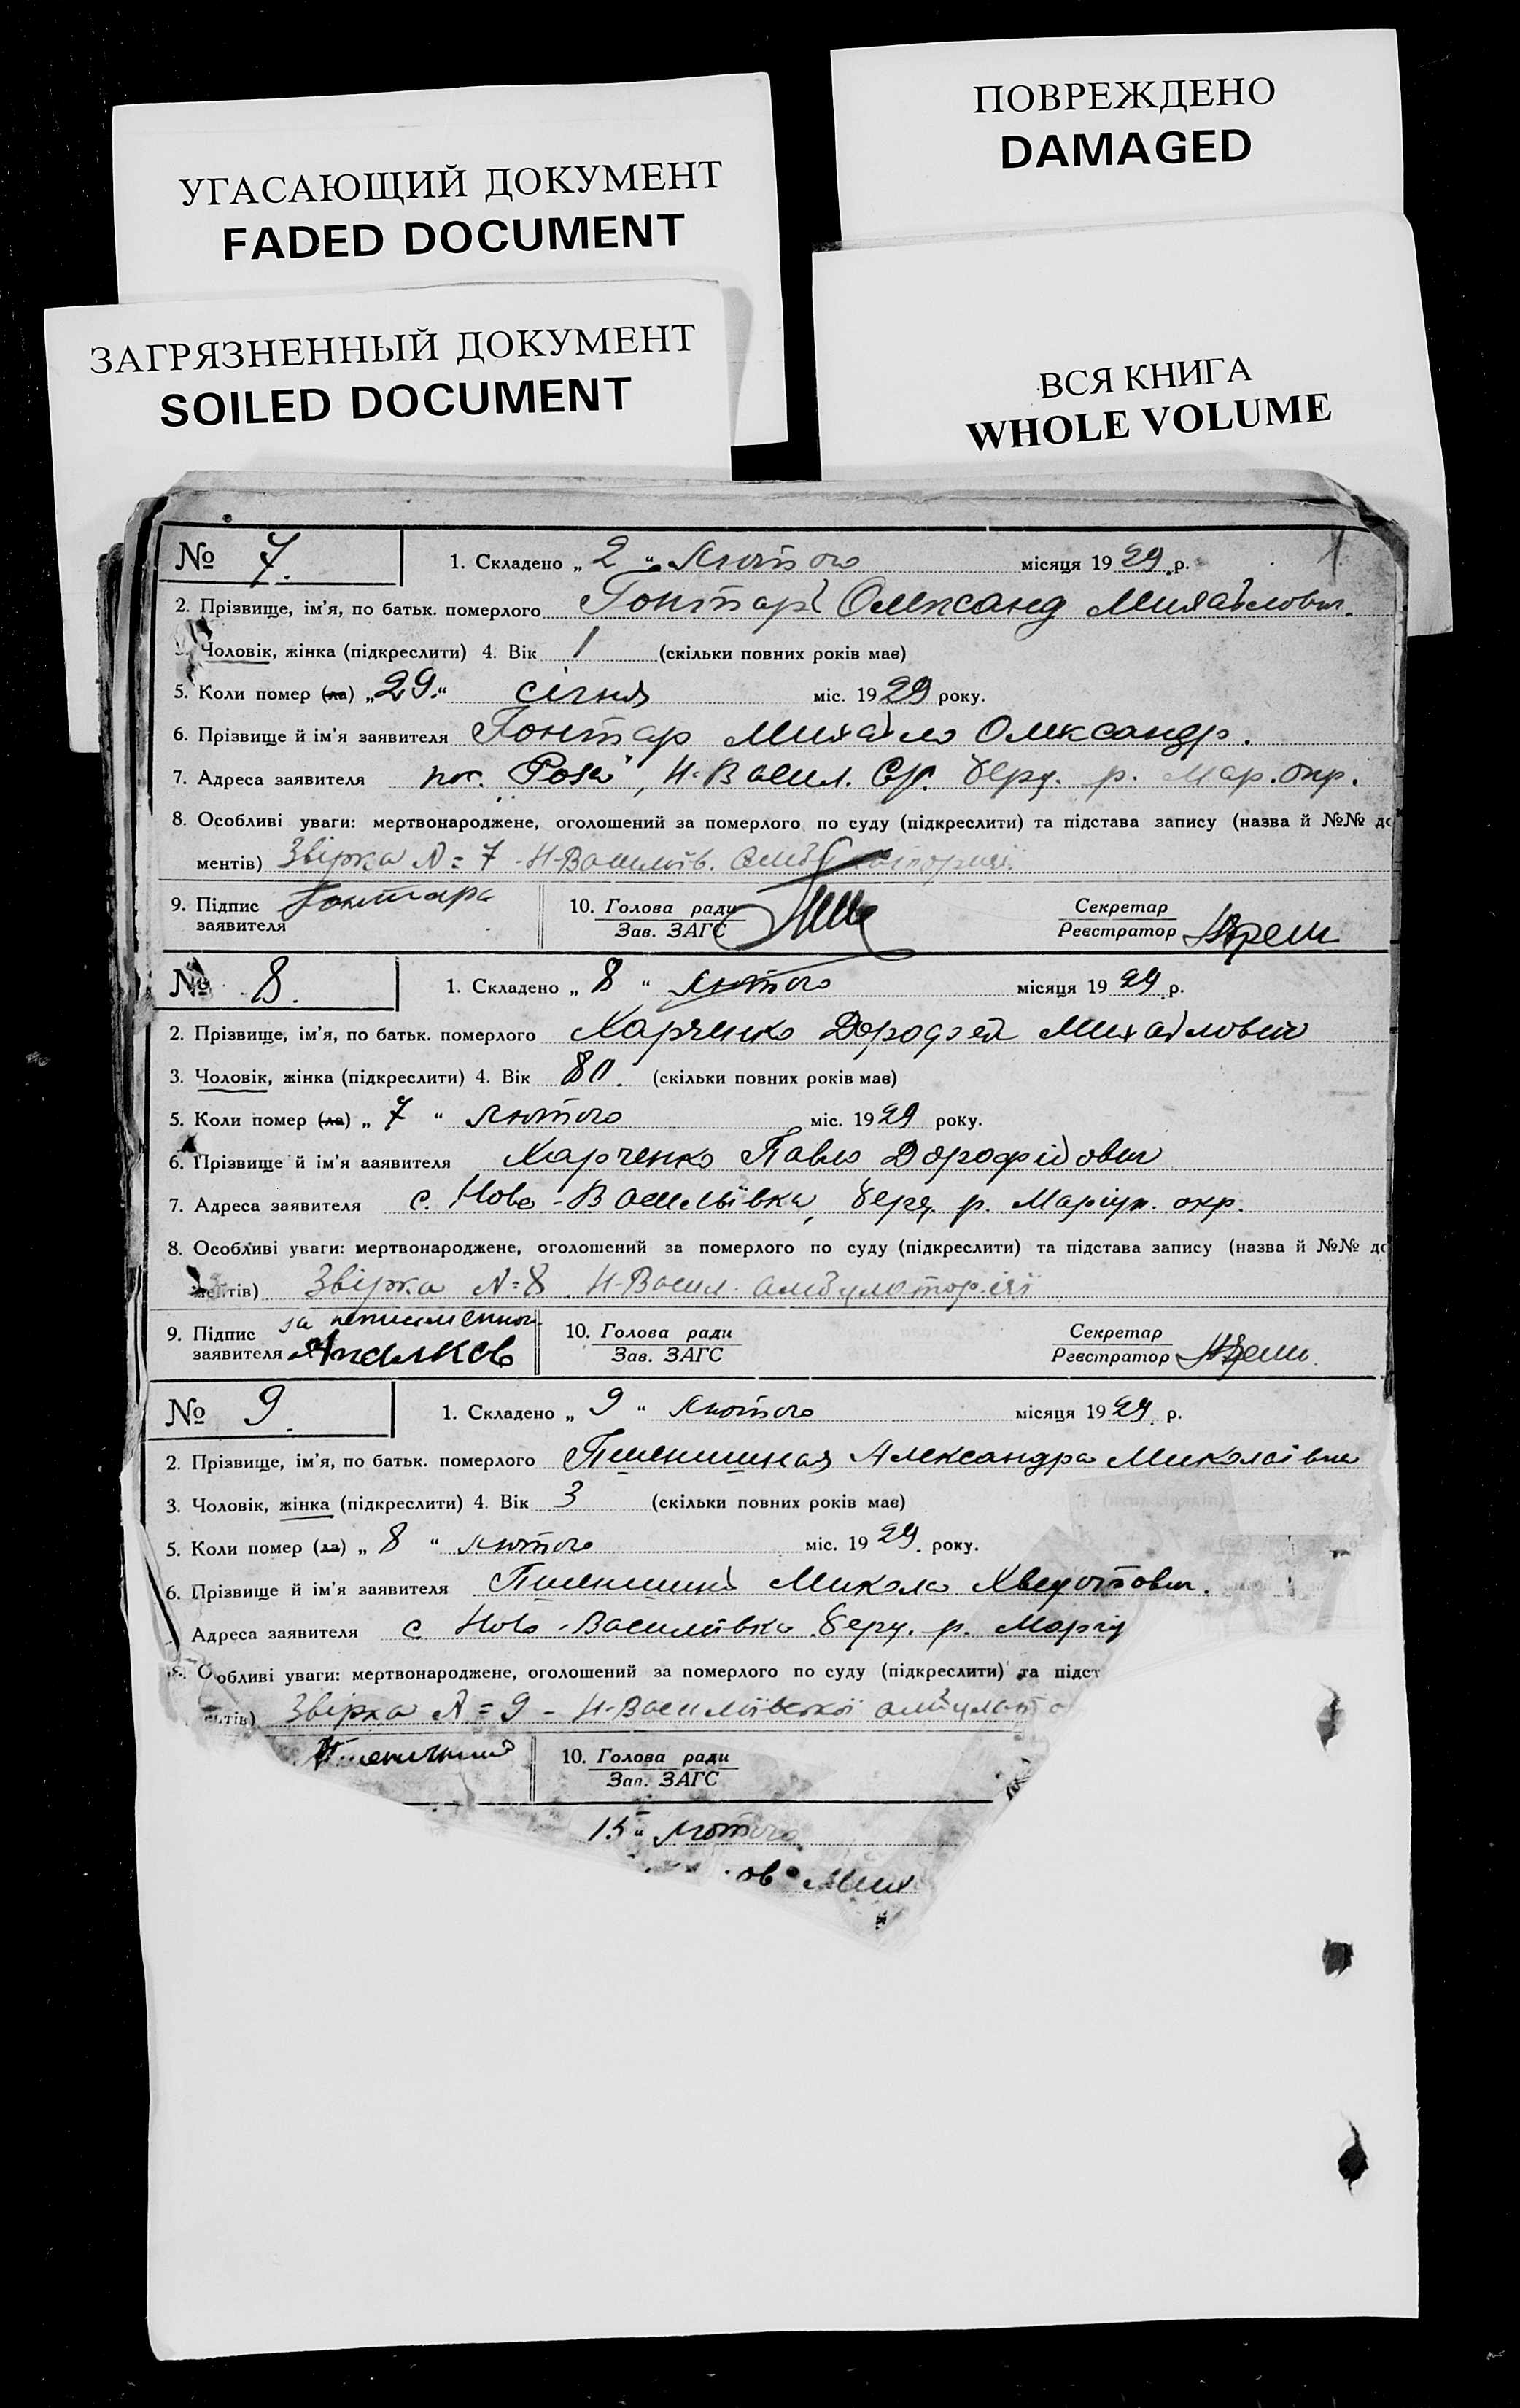 УГАСАЮЩИЙ ДОКУМЕНТ
FADED DOCUMENT
ПОВРЕЖДЕНО
DAMAGED
ЗАГРЯЗНЕННЫЙ ДОКУМЕНТ
SOILED DOCUMENT
ВСЯ КНИГА
WHOLE VOLUME
№ 7. 1. Складено „ 2 “ Лютого місяця 1929 р.
2. Прізвище, ім'я, по батьк. померлого Гонтар Олександ Михайлович.
Чоловік, жінка (підкреслити) 4. Вік 1 (скільки повних років має)
5. Коли помер (ла) „29.“ січня міс. 1929 року.
6. Прізвище й ім'я заявителя Гонтар Михайло Олександр.
7. Адреса заявителя пос. „Роза“, Н-Васил. С/р. берд. р. Мар. окр.
8. Особливі уваги: мертвонароджене, оголошений за померлого по суду (підкреслити) та підстава запису (назва й №№ до
ментів) Звірка №= 7 - Н-Василів.
9. Підпис Гонтарь 10. Голова ради Секретар
заявителя Зав. ЗАГС Реєстратор
№ 8. 1. Складено „ 8 “ Лютого місяця 1929 р.
2. Прізвище, ім'я, по батьк. померлого Харченко Михайлович
3. Чоловік, жінка (підкреслити) 4. Вік 80. (скільки повних років має)
5. Коли помер (ла) „ 7 “ Лютого міс. 1929 року.
6. Прізвище й ім'я заявителя Харченко Павло Дорофійович
7. Адреса заявителя с. Ново-Васильївка, берд. р. Маріуп. окр.
8. Особливі уваги: мертвонароджене, оголошений за померлого по суду (підкреслити) та підстава запису (назва й №№ до
ментів) Звірка №=8 Н-Васил. амбулаторії
9. Підпис за 10. Голова ради Секретар
заявителя Зав. ЗАГС Реєстратор
№ 9. 1. Складено „ 9 “ Лютого місяця 1929 р.
2. Прізвище, ім'я, по батьк. померлого Пшенишная Александра Миколаївна
3. Чоловік, жінка (підкреслити) 4. Вік 3 (скільки повних років має)
5. Коли помер (ла) „ 8 “ Лютого міс. 1929. року.
6. Прізвище й ім'я заявителя Пшенишний Микола Хведотович.
Адреса заявителя с Ново-Василівка берд. р. Маріу
8. Особливі уваги: мертвонароджене, оголошений за померлого по суду (підкреслити) та підст
ентів) Звірка №=9 - Н-Василівської амбулато
Пшеничний 10. Голова ради
Зав. ЗАГС
15“ Лютого
ов Мих